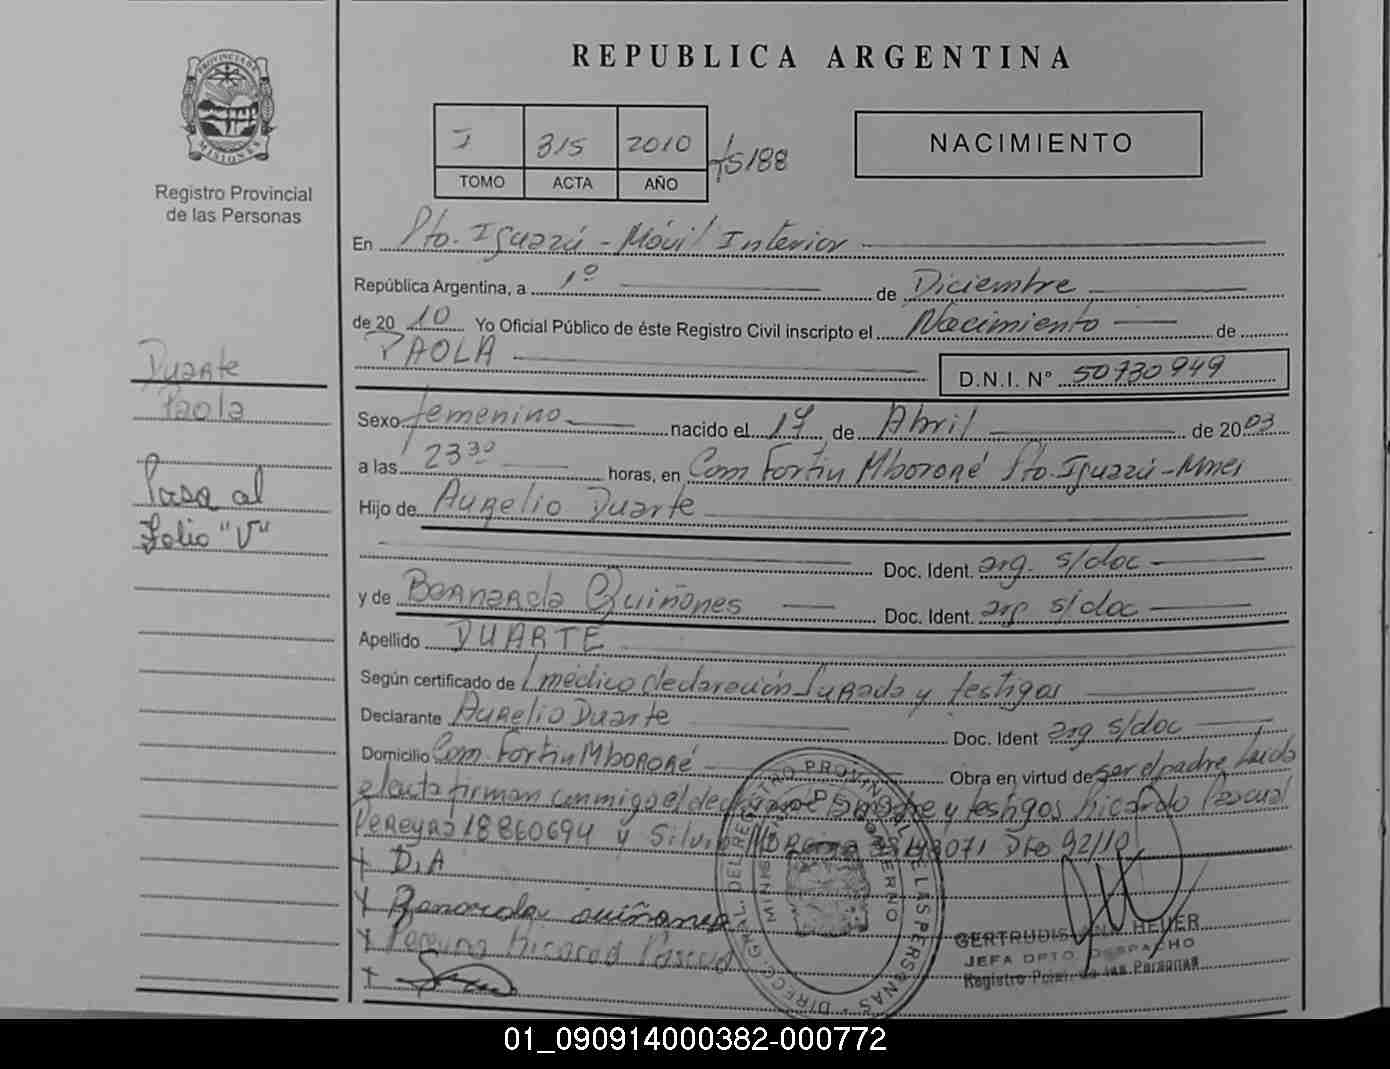 REPUBLICA ARGENTINA
PROVINCIA DE MISIONES
Registro Provincial
de las Personas
I 315 2010
TOMO ACTA AÑO
NACIMIENTO
En Pto. Iguazú - Móvil Interior
República Argentina, a 1º de Diciembre
de 20 10 Yo Oficial Público de éste Registro Civil inscripto el Nacimiento de
PAOLA
D.N.I. Nº 50730949
Duarte
Paola
Pasa al
Folio "V"
Sexo femenino nacido el 17 de Abril de 2003
a las 23 30 horas, en Com Fortin Mbororé Pto. Iguazú - Mnes
Hijo de Aurelio Duarte
Doc. Ident. arg. s/doc
y de Bernarda Quiñones Doc. Ident. arg s/doc
Apellido DUARTE
Según certificado de médico declaración Jurada y testigos
Declarante Aurelio Duarte Doc. Ident arg s/doc
Domicilio Com. Fortin Mbororé Obra en virtud de ser el padre Leida
el acta firman conmigo el declarante la madre y testigos Ricardo Pascual
Pereyra 18860694 y Silvio Dto 92/10
+ D.A
+ Bernarda quiñones
+ Pereyra Ricardo Pascual
+
DIRECC. GRAL. DEL REGISTRO PROVINCIAL DE LAS PERSONAS
MINISTERIO DE GOBIERNO
GERTRUDIS HEUER
JEFA DPTO. DESPACHO
Registro Pcial. de las Personas
01_090914000382-000772